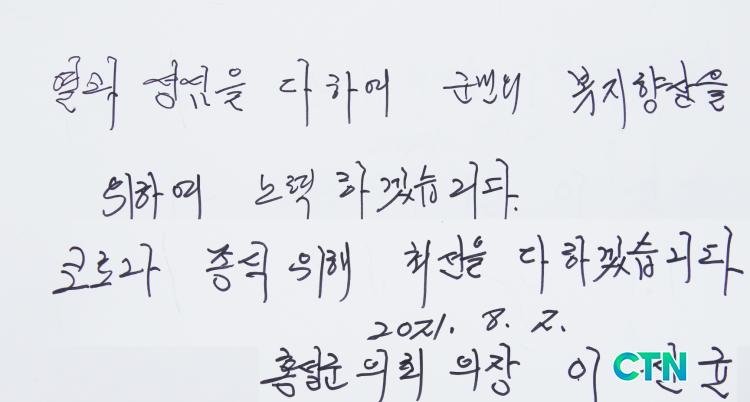 열과 성심을 다하여 군민의 복지향상을
위하여 노력 하겠습니다.
코로나 종식 위해 최선을 다하겠습니다.
2021. 8. 2.
홍성군의회 의장 이 균
CTN